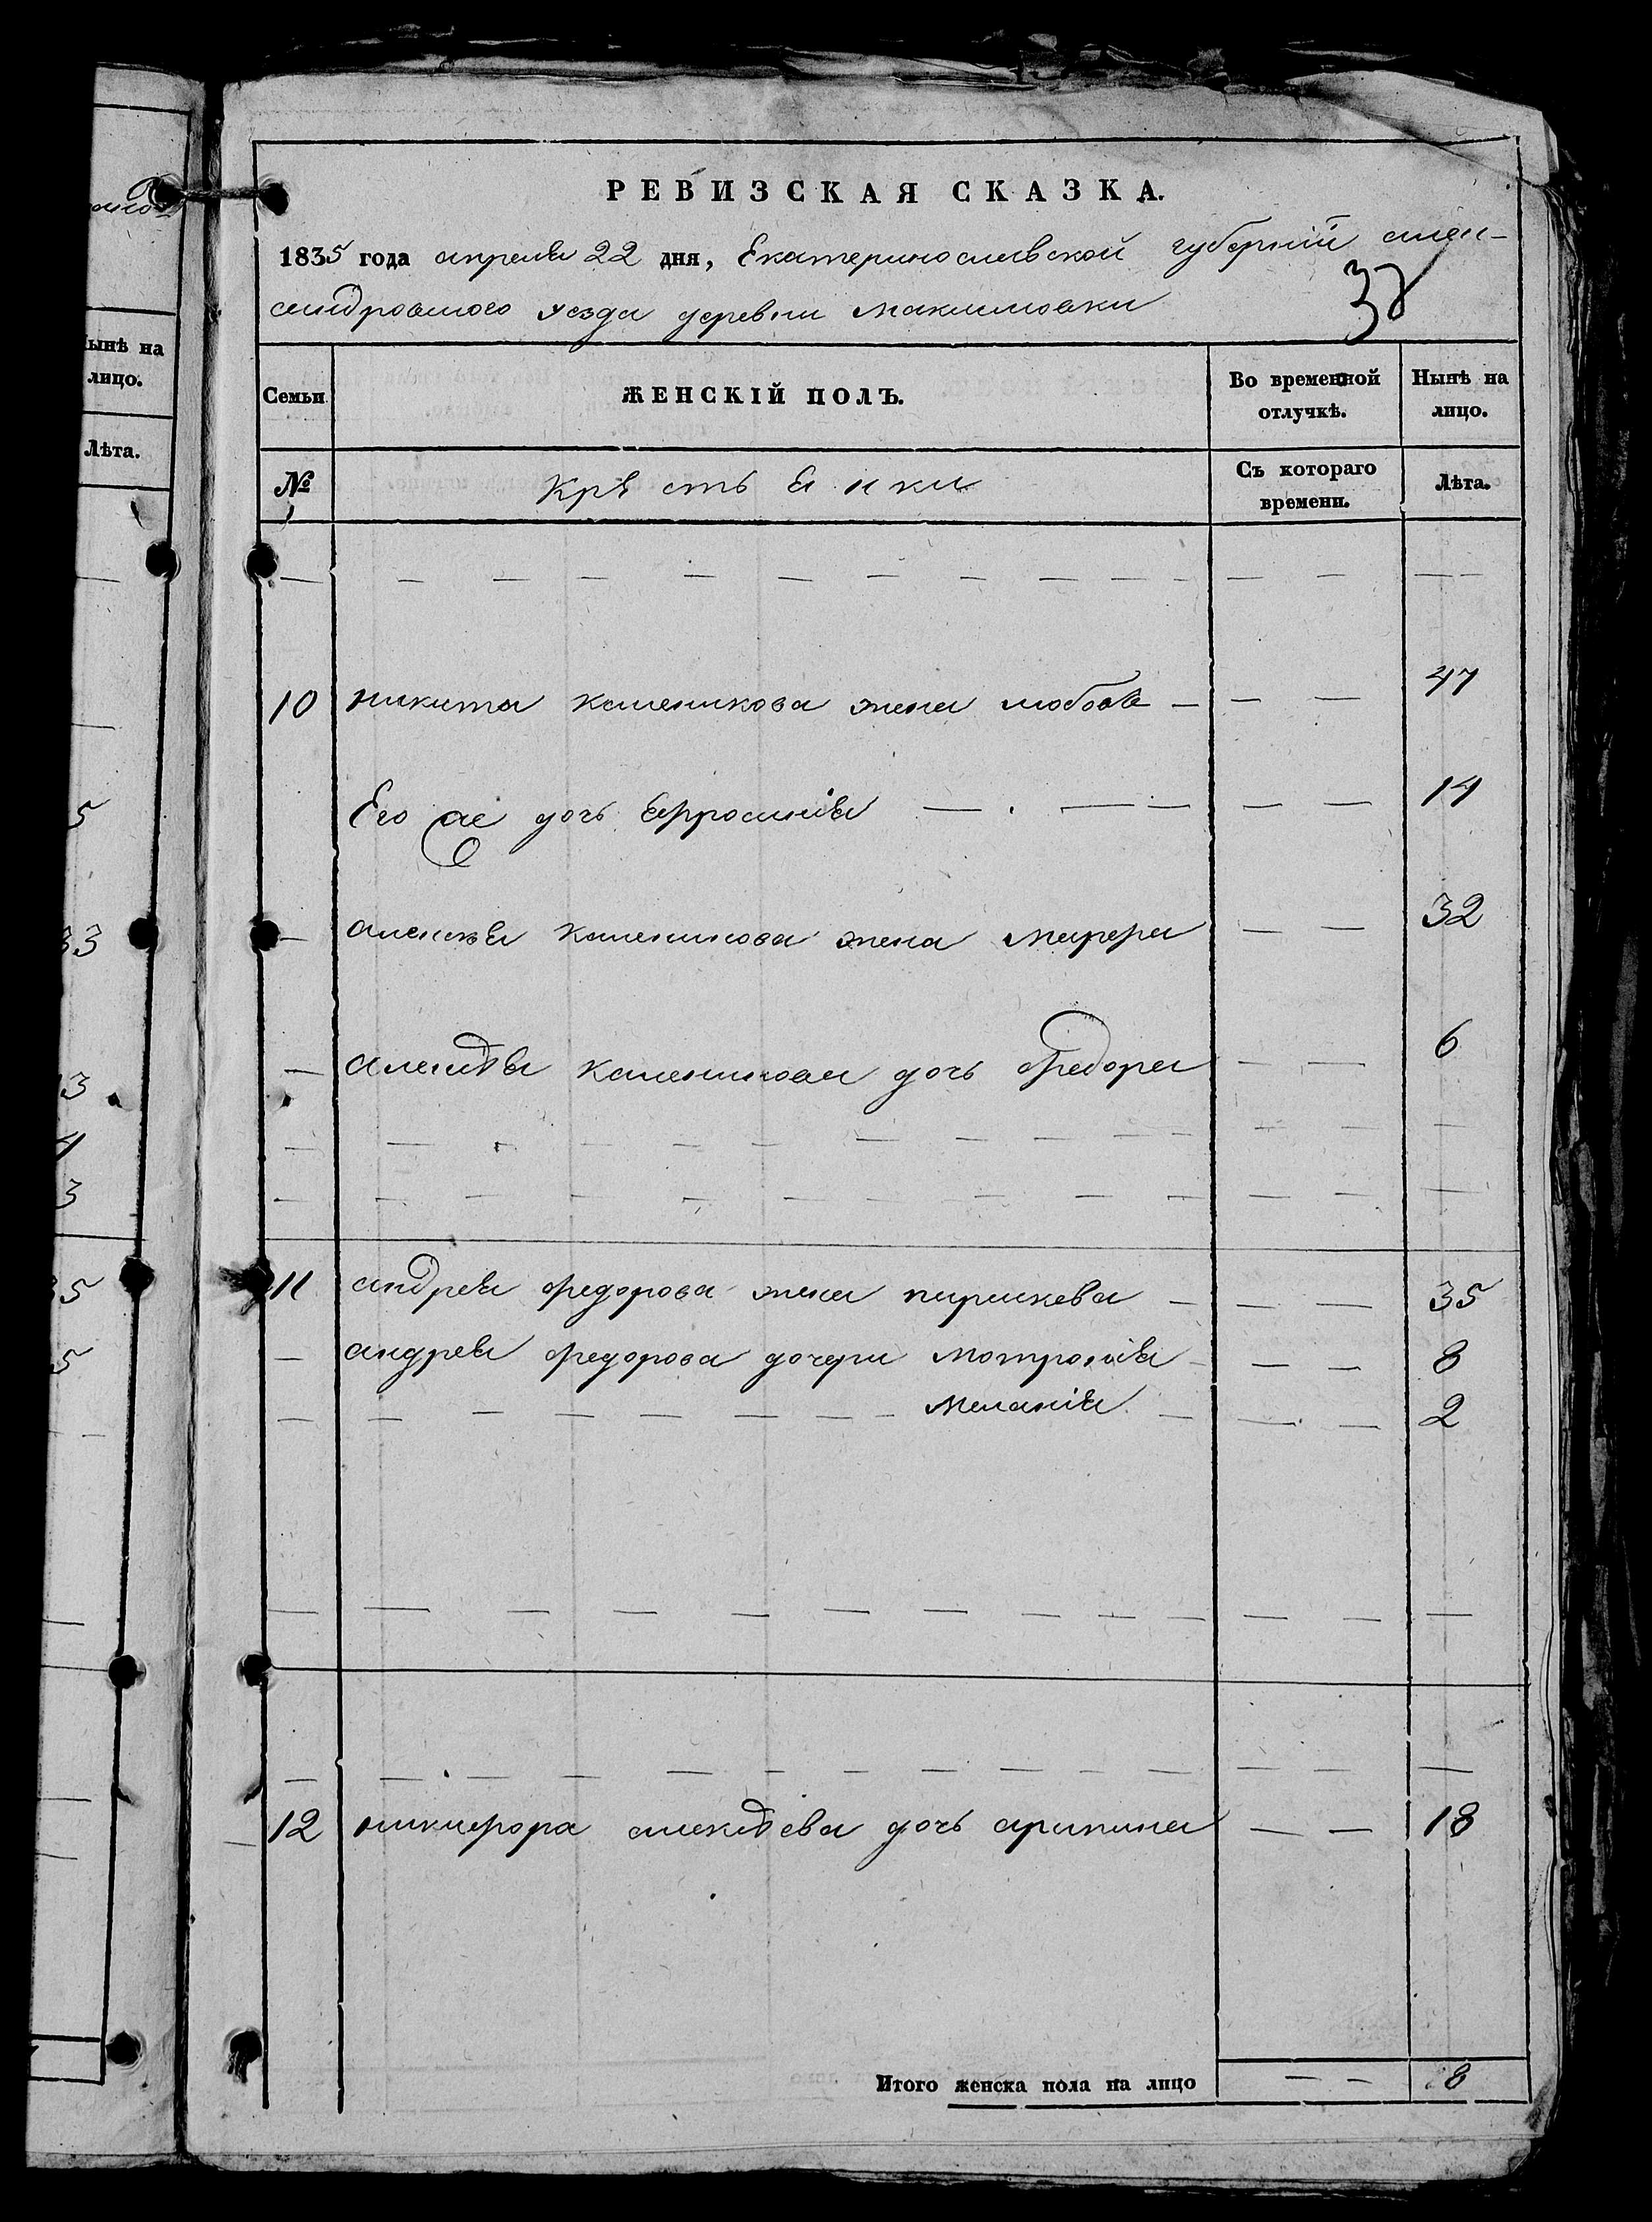 РЕВИЗСКАЯ СКАЗКА.
1835 года апреля 22 дня, Екатеринославской губернiи алек-
сандровского уезда деревни максимовки
38
Семьи
ЖЕНСКІЙ ПОЛЪ.
Во временной отлучкѣ.
Нынѣ на лицо.
№
Крѣстьянки
Съ котораго времени.
Лѣта.
10 никита каленикова жена любовь 47
Его же дочь Ефросинiя 14
алексѣя каленикова жена марфа 32
алексѣя каленикова дочь Федора 6
11 андрея федорова жена парискева 35
андрея федорова дочери мотрония 8
меланiя 2
12 никифора алексѣева дочь арипина 18
Итого женска пола на лицо 8
ынѣ на
лицо.
Лѣта.
5
33
3
4
3
35
5